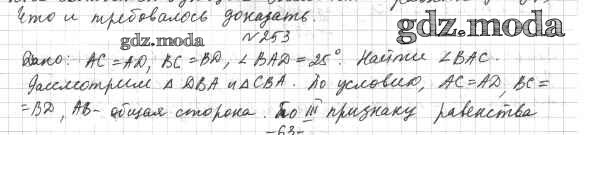 что и требовалось доказать.
gdz.moda
gdz.moda
№253
Дано: AC=AD, BC=BD, ∠BAD=25°. Найти ∠BAC.
Рассмотрим △DBA и △CBA. По условию, AC=AD, BC=
=BD, AB- общая сторона. По III признаку равенства
-63-